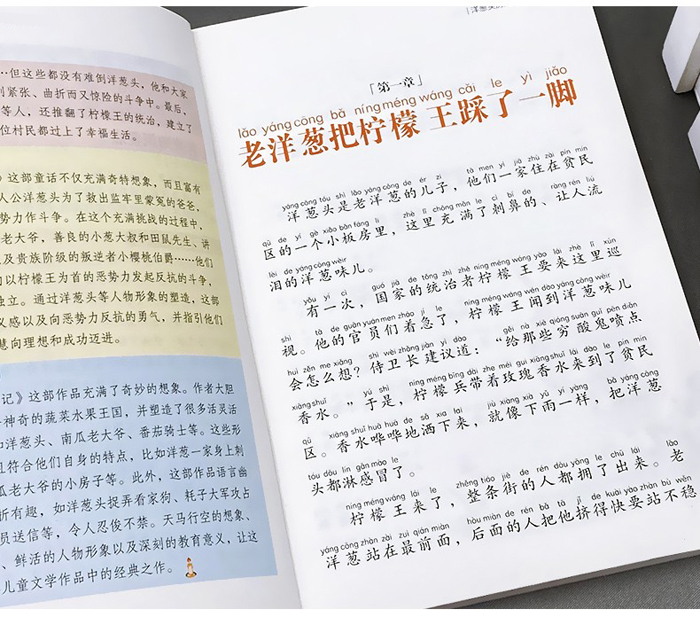 …但这些都没有难倒洋葱头，他和大家
紧张、曲折而又惊险的斗争中。最后，
等人，还推翻了柠檬王的统治，建立了
位村民都过上了幸福生活。
》这部童话不仅充满奇特想象，而且富有
人公洋葱头为了救出监牢里蒙冤的爸爸，
势力作斗争。在这个充满挑战的过程中，
老大爷，善良的小葱大叔和田鼠先生、讲
及贵族阶级的叛逆者小樱桃伯爵……他们
以柠檬王为首的恶势力发起反抗的斗争，
独立。通过洋葱头等人物形象的塑造，这部
义感以及向恶势力反抗的勇气，并指引他们
慧向理想和成功迈进。
记》这部作品充满了奇妙的想象。作者大胆
神奇的蔬菜水果王国，并塑造了很多活灵活
如洋葱头、南瓜老大爷、番茄骑士等。这些形
且符合他们自身的特点，比如洋葱一家身上刺
瓜老大爷的小房子等。此外，这部作品语言幽
折有趣，如洋葱头捉弄看家狗、耗子大军攻占
员送信等，令人忍俊不禁。天马行空的想象、
、鲜活的人物形象以及深刻的教育意义，让这
儿童文学作品中的经典之作。
「第一章」
lǎo yáng cōng bǎ níng méng wáng cǎi le yì jiǎo
老洋葱把柠檬王踩了一脚
yáng cōng tóu shì lǎo yáng cōng de ér zi tā men yì jiā zhù zài pín mín
洋葱头是老洋葱的儿子，他们一家住在贫民
qū de yí gè xiǎo bǎn fáng lǐ zhè lǐ chōng mǎn le cì bí de ràng rén liú
区的一个小板房里，这里充满了刺鼻的、让人流
lèi de yáng cōng wèir
泪的洋葱味儿。
yǒu yí cì guó jiā de tǒng zhì zhě níng méng wáng yào lái zhè lǐ xún
有一次，国家的统治者柠檬王要来这里巡
shì tā de guān yuán men zháo jí le níng méng wáng wén dào yáng cōng wèir
视。他的官员们着急了，柠檬王闻到洋葱味儿
huì zěn me xiǎng shì wèi zhǎng jiàn yì dào gěi nà xiē qióng suān guǐ pēn diǎn
会怎么想？侍卫长建议道：“给那些穷酸鬼喷点
xiāng shuǐ yú shì níng méng bīng dài zhe méi gui xiāng shuǐ lái dào le pín mín
香水。”于是，柠檬兵带着玫瑰香水来到了贫民
qū xiāng shuǐ huā huā de sǎ xià lái jiù xiàng xià yǔ yí yàng bǎ yáng cōng
区。香水哗哗地洒下来，就像下雨一样，把洋葱
tóu dōu lín gǎn mào le
头都淋感冒了。
níng méng wáng lái le zhěng tiáo jiē de rén dōu yōng le chū lái lǎo
柠檬王来了，整条街的人都拥了出来。老
yáng cōng zhàn zài zuì qián miàn hòu miàn de rén bǎ tā jǐ de kuài yào zhàn bù wěn
洋葱站在最前面，后面的人把他挤得快要站不稳